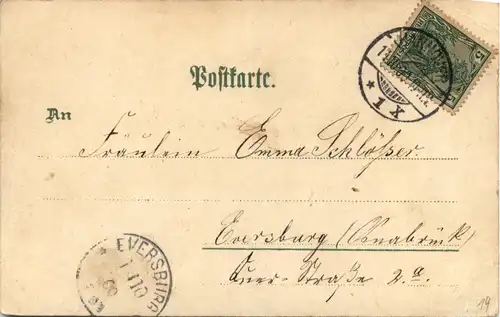 Postkarte.
An
Fräulein Emma Schlößer.
Eversburg (Osnabrück)
Straße 2.a.
* 1 X
EVERSBURG
5
5
14